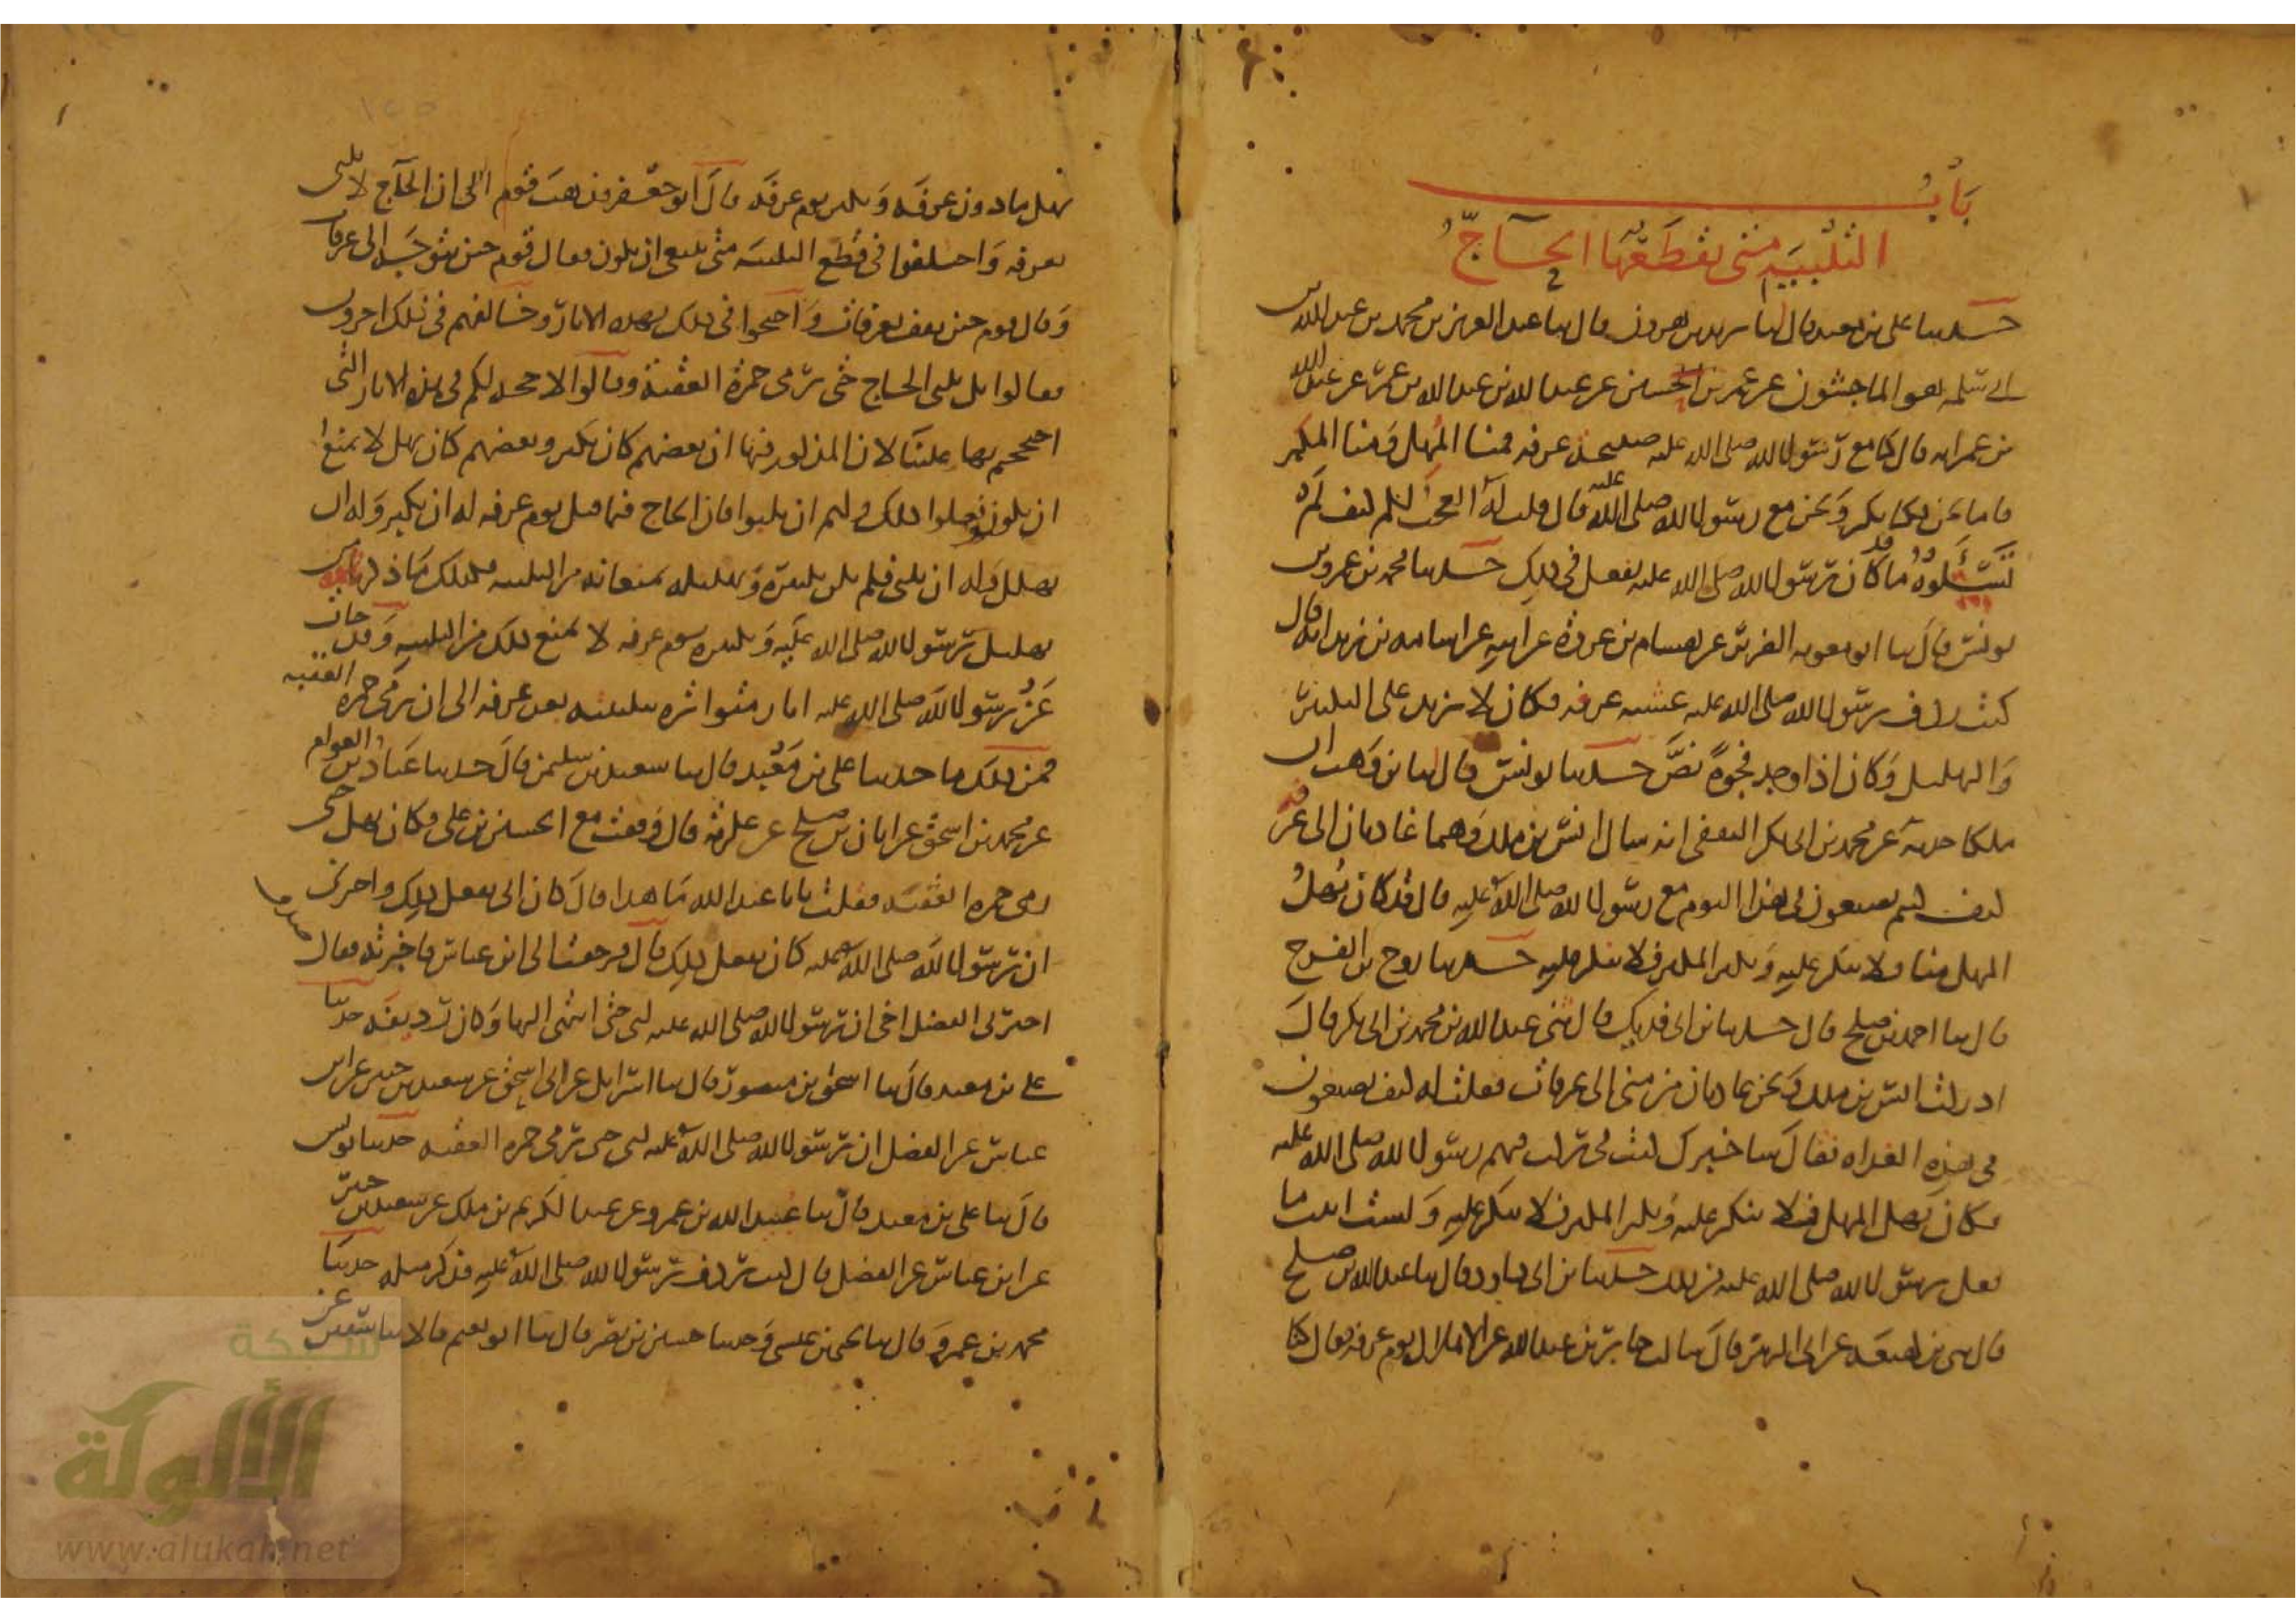 باب
التلبية متى يقطعها الحاج
حدثنا علي بن معبد قال ثنا يزيد بن هرون قال ثنا عبد العزيز بن محمد بن عبد الله بن
ابي سلمة هو الماجشون عن عمر بن الحسين عن عبد الله بن عبد الله بن عمر عن عبد الله
بن عمر انه قال كنا مع رسول الله صلى الله عليه صبيحة عرفة فمنا المهل ومنا المكبر
فاما نحن فكنا نكبر ونحن مع رسول الله صلى الله عليه قال قلت له العجب لكم كيف لم
تسئلوه ما كان رسول الله صلى الله عليه يفعل في ذلك حدثنا محمد بن عمرو بن
يونس قال ثنا ابو معوية الضرير عن هشام بن عروة عن ابيه عن اسامة بن زيد انه قال
كنت ردف رسول الله صلى الله عليه عشية عرفة فكان لا يزيد على التكبير
والتهليل وكان اذا وجد فجوة نص حدثنا يونس قال ثنا بن وهب ان
ملكا حدثه عن محمد بن ابي بكر الثقفي انه سال انس بن ملك وهما غاديان الى عرفة
كيف كنتم تصنعون في هذا اليوم مع رسول الله صلى الله عليه قال قد كان يهل
المهل منا فلا ينكر عليه ويكبر المكبر فلا ينكر عليه حدثنا روح بن الفرج
قال ثنا احمد بن صلح قال حدثنا بن ابي فديك قال ثني عبد الله بن محمد بن ابي بكر قال
ادركت انس بن ملك ونحن غاديان من منى الى عرفات فقلت له كيف تصنعون
في هذه الغداة فقال سا خبرك كنت في ركب فيهم رسول الله صلى الله عليه
فكان يهل المهل فلا ينكر عليه ويكبر المكبر فلا ينكر عليه ولست اثبت ما
فعل رسول الله صلى الله عليه من ذلك حدثنا بن ابي داود قال ثنا عبد الله بن صلح
قال ثني بن لهيعة عن ابي الزبير قال سالت جابر بن عبد الله عن الاهلال يوم عرفة فقال كنا
نهل ما دون عرفة ونكبر يوم عرفة قال ابو جعفر فذهب قوم الى ان الحاج لا يلبي
بعرفة واختلفوا في قطع التلبية متى ينبغي ان يكون فقال قوم حين يتوجه الى عرفات
وقال قوم حين يقف بعرفات واحتجوا في ذلك بهذه الاثار وخالفهم في ذلك اخرون
فقالوا بل يلبي الحاج حتى يرمي جمرة العقبة وقالوا لا حجة لكم في هذه الاثار التي
احتججتم بها علينا لان المذكور فيها ان بعضهم كان يكبر وبعضهم كان يهل لا يمنع
ان يكونوا فعلوا ذلك ولهم ان يلبوا فان الحاج فيما قبل يوم عرفة له ان يكبر وله ان
يهلل وله ان يلبي فلم يكن تكبيره وتهليله يمنعانه من التلبية فكذلك ما ذكرتموه من
تهليل رسول الله صلى الله عليه وتكبيره يوم عرفة لا يمنع ذلك من التلبية وقد جات
عن رسول الله صلى الله عليه اثار متواترة بتلبيته بعد عرفة الى ان رمى جمرة العقبة
فمن ذلك ما حدثنا علي بن معبد قال ثنا سعيد بن سليمن قال حدثنا عباد بن العوام
عن محمد بن اسحق عن ابان بن صلح عن عكرمة قال وقفت مع الحسين بن علي فكان يهل حتى
رمى جمرة العقبة فقلت يا با عبد الله ما هذا قال كان ابي يفعل ذلك واخبرني
ان رسول الله صلى الله عليه كان يفعل ذلك قال فرجعت الى ابن عباس فاخبرته فقال صدق
اخبرني الفضل اخي ان رسول الله صلى الله عليه لبى حتى انتهى اليها وكان رديفه حدثنا
علي بن معبد قال ثنا اسحق بن منصور قال ثنا اسرائيل عن ابي اسحق عن سعيد بن جبير عن ابن
عباس عن الفضل ان رسول الله صلى الله عليه لبى حتى رمى جمرة العقبة حدثنا يونس
قال ثنا علي بن معبد قال ثنا عبيد الله بن عمرو عن عبد الكريم بن ملك عن سعيد بن جبير
عن ابن عباس عن الفضل قال كنت ردف رسول الله صلى الله عليه فذكر مثله حدثنا
محمد بن عمرو قال ثنا يحيى بن عيسى وحدثنا حسين بن نصر قال ثنا ابو نعيم قالا ثنا سفين عن
شبكة
الألوكة
www.alukah.net